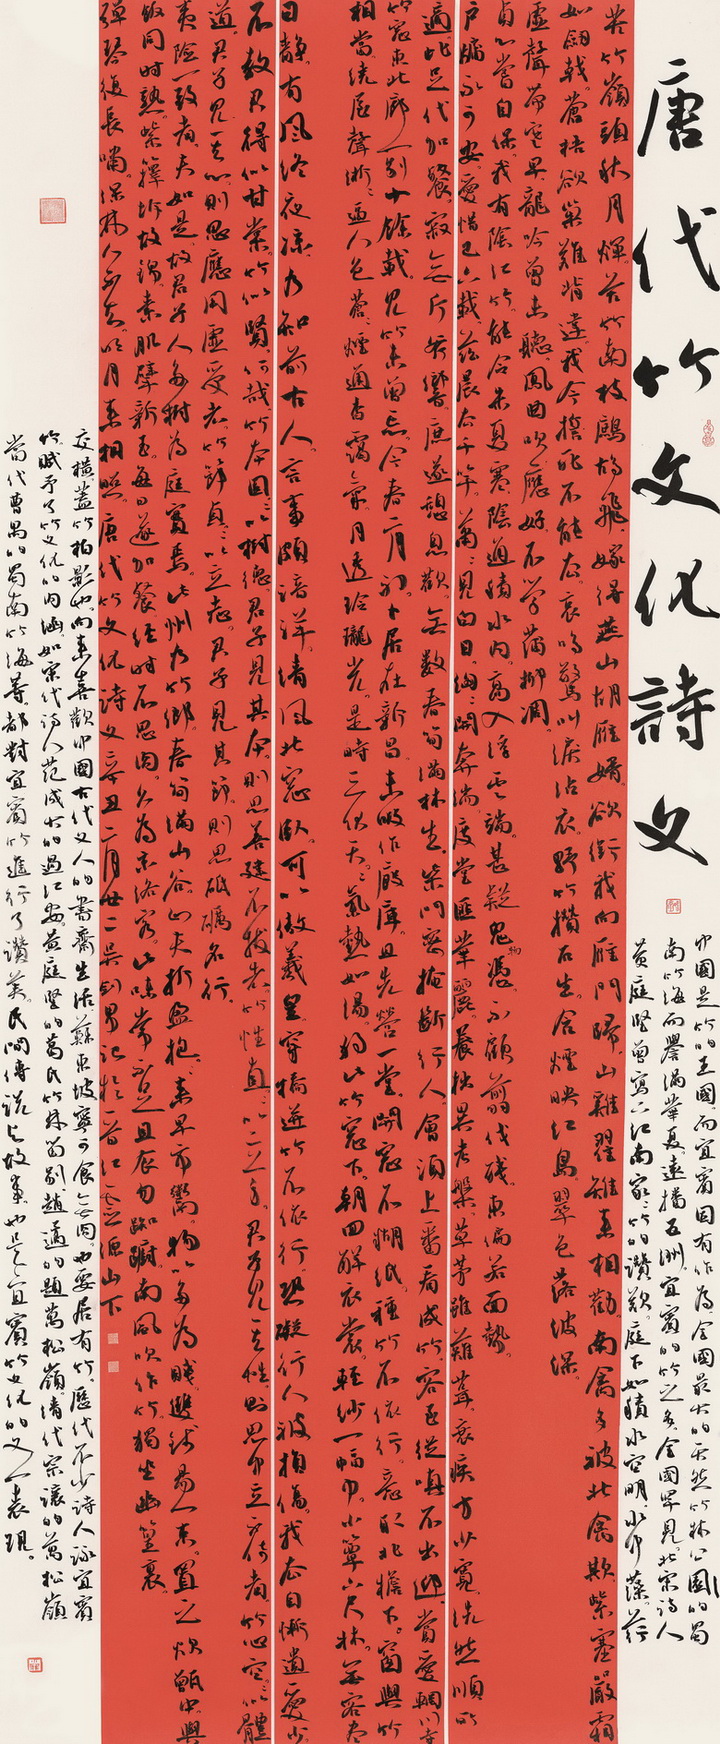 唐代竹文化詩文
中國是竹的王國而宜賓因有作為全國最大的天然竹林公園的蜀
南竹海而譽滿華夏遠播五洲宜賓的竹之多全國罕見北宋詩人
黃庭堅曾寫下江南家家竹的讚歎庭下如積水空明水中藻荇
苦竹嶺頭秋月輝苦竹南枝鷓鴣飛嫁得燕山胡雁婿欲銜我向雁門歸山雞翟雉來相勸南禽多被北禽欺紫塞嚴霜
如劍戟蒼梧欲巢難背違我今誓死不能去哀鳴驚叫淚沾衣野竹攢石生含煙映江島翠色落波深
虛聲帶寒早龍吟曾未聽鳳曲吹應好不學蒲柳凋
貞心嘗自保我有陰江竹能令朱夏寒陰通積水內高入浮雲端甚疑鬼物憑不顧翦伐殘東偏若面勢
戶牖永可安愛惜已六載茲晨去千竿蕭蕭見白日洶洶開奔湍度堂匪華麗養拙異考槃草茅雖薙葺衰疾方少寬洗然順所
適此足代加餐寂無斤斧響庶遂憩息歡無數春筍滿林生柴門密掩斷行人會須上番看成竹客至從嗔不出迎嘗愛輞川寺
竹窗東北廊一別十餘載見竹未曾忘今春二月初卜居在新昌未暇作廄庫且先營一堂開窗不糊紙種竹不依行意取北檐下窗與竹
相當繞屋聲淅淅逼人色蒼蒼煙通杳靄氣月透玲瓏光是時三伏天天氣熱如湯獨此竹窗下朝回解衣裳輕紗一幅巾小簟六尺床無客盡
日靜有風終夜涼乃知前古人言事頗諳詳清風北窗臥可以傲羲皇穿橋迸竹不依行恐礙行人被損傷我去自慚遺愛少
不教君得似甘棠竹似賢何哉竹本固固以樹德君子見其本則思善建不拔者竹性直直以立身君子見其性則思中立不倚者竹心空空以體
道君子見其心則思應用虛受者竹節貞貞以立志君子見其節則思砥礪名行
夷險一致者夫如是故君子人多樹為庭實焉此州乃竹鄉春筍滿山谷山夫折盈抱抱來早市鬻物以多為賤雙錢易一束置之炊甑中與
飯同時熟紫籜坼故錦素肌擘新玉每日遂加餐經時不思肉久為京洛客此味常不足且食勿踟躕南風吹作竹獨坐幽篁裏
彈琴復長嘯深林人不知明月來相照唐代竹文化詩文辛丑二月廿二吳劍男記於山下
交橫蓋竹柏影也向來喜歡中國古代文人的書齋生活蘇東坡寧可食無肉也要居有竹歷代不少詩人詠宜賓
竹賦予了竹文化的內涵如宋代詩人范成大的過江安黃庭堅的葛氏竹林留別趙遹的題萬松嶺清代宗讓的萬松嶺
當代曹禺的蜀南竹海等都對宜賓竹進行了讚美民間傳說與故事也是宜賓竹文化的又一表現。